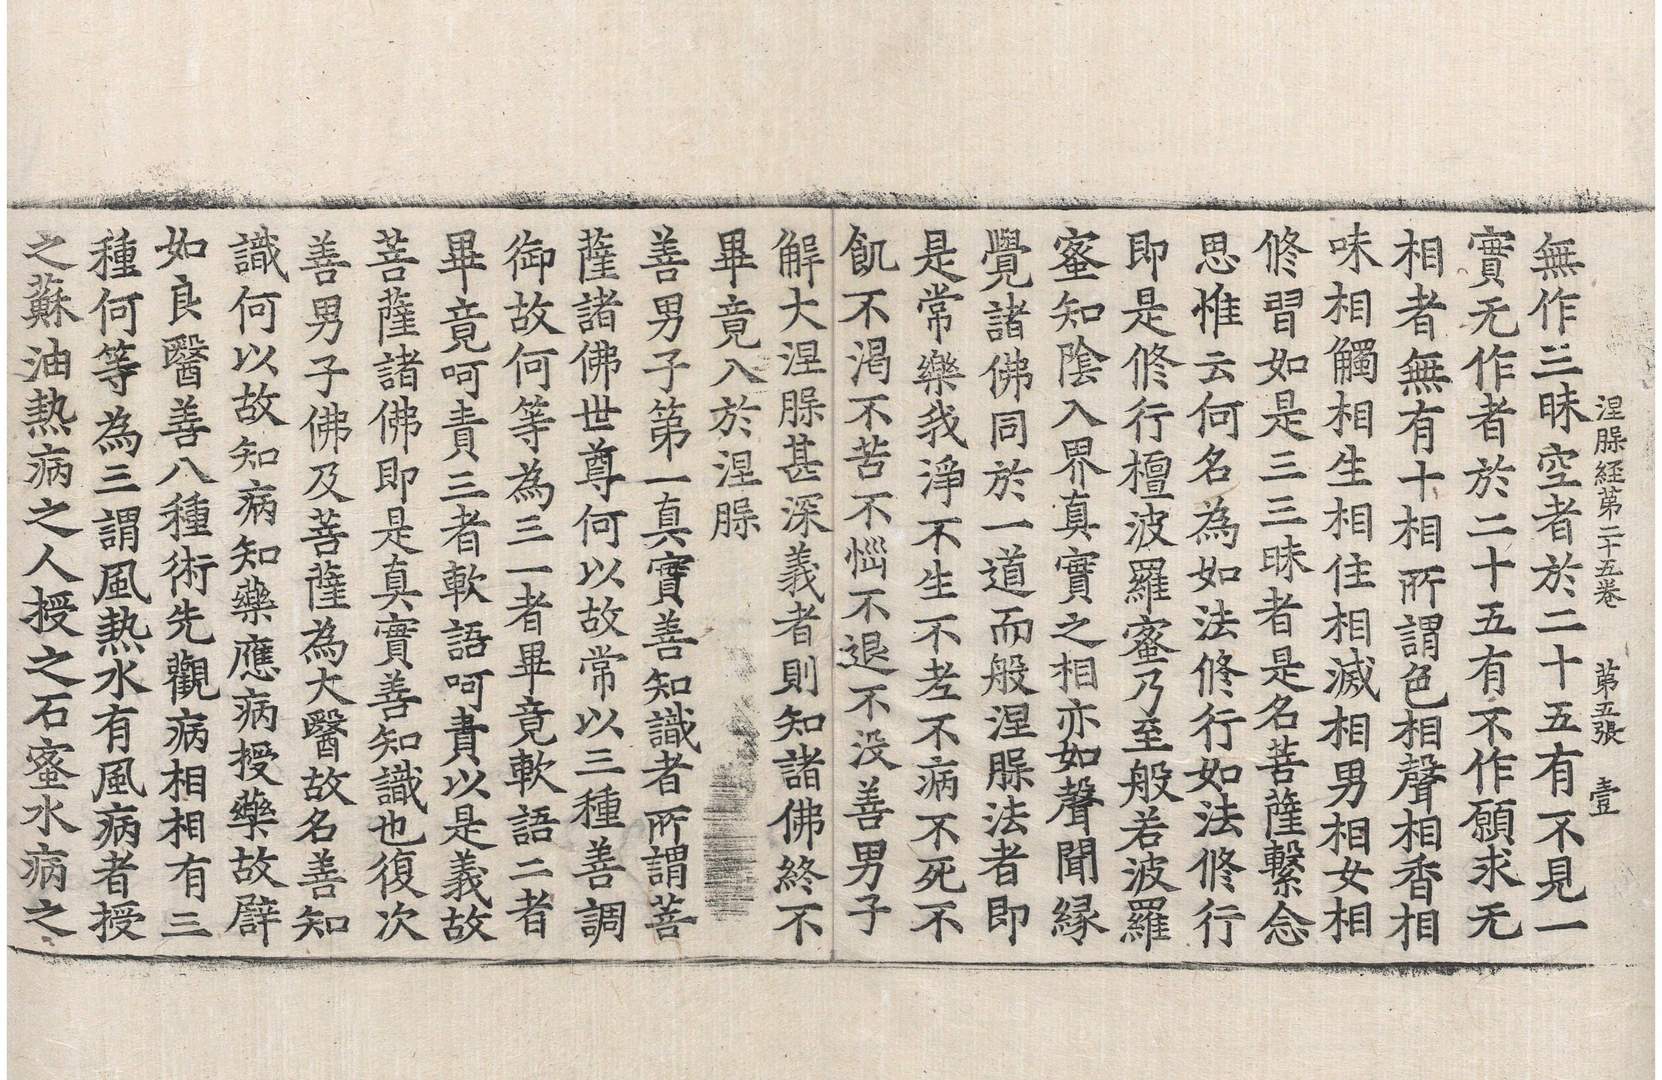 涅槃經第二十五卷　第五張　壹
無作三昧空者於二十五有不見一
實无作者於二十五有不作願求无
相者無有十相所謂色相聲相香相
味相觸相生相住相滅相男相女相
修習如是三三昧者是名菩薩繫念
思惟云何名為如法修行如法修行
即是修行檀波羅蜜乃至般若波羅
蜜知陰入界真實之相亦如聲聞緣
覺諸佛同於一道而般涅槃法者即
是常樂我淨不生不老不病不死不
飢不渴不苦不惱不退不没善男子
解大涅槃甚深義者則知諸佛終不
畢竟入於涅槃
善男子第一真實善知識者所謂菩
薩諸佛世尊何以故常以三種善調
御故何等為三一者畢竟軟語二者
畢竟呵責三者軟語呵責以是義故
菩薩諸佛即是真實善知識也復次
善男子佛及菩薩為大醫故名善知
識何以故知病知藥應病授藥故譬
如良醫善八種術先觀病相相有三
種何等為三謂風熱水有風病者授
之蘇油熱病之人授之石蜜水病之